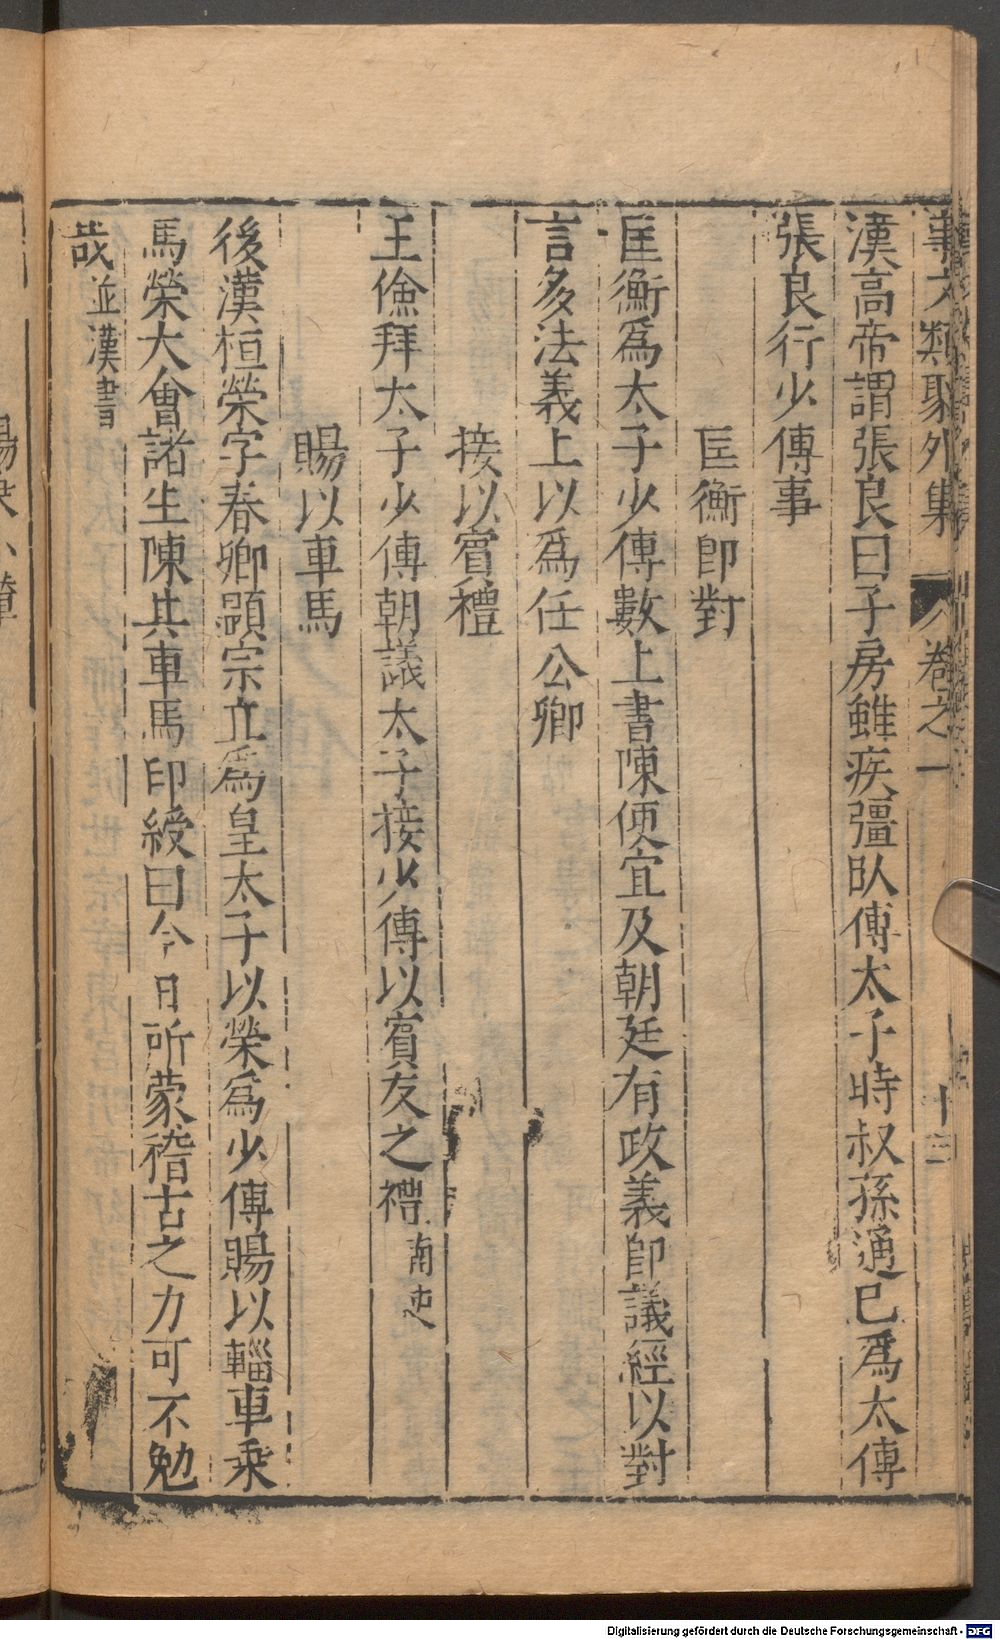 事文類聚外集 卷之一 十三
漢高帝謂張良曰子房雖疾彊臥傅太子時叔孫通已爲太傅
張良行少傅事
匡衡卽對
匡衡爲太子少傅數上書陳便宜及朝廷有政義卽議經以對
言多法義上以爲任公卿
接以賓禮
王儉拜太子少傅朝議太子接少傅以賓友之禮南史
賜以車馬
後漢桓榮字春卿顯宗立爲皇太子以榮爲少傅賜以輜車乘
馬榮大會諸生陳其車馬印綬曰今日所蒙稽古之力可不勉
哉並漢書
Digitalisierung gefördert durch die Deutsche Forschungsgemeinschaft - DFG